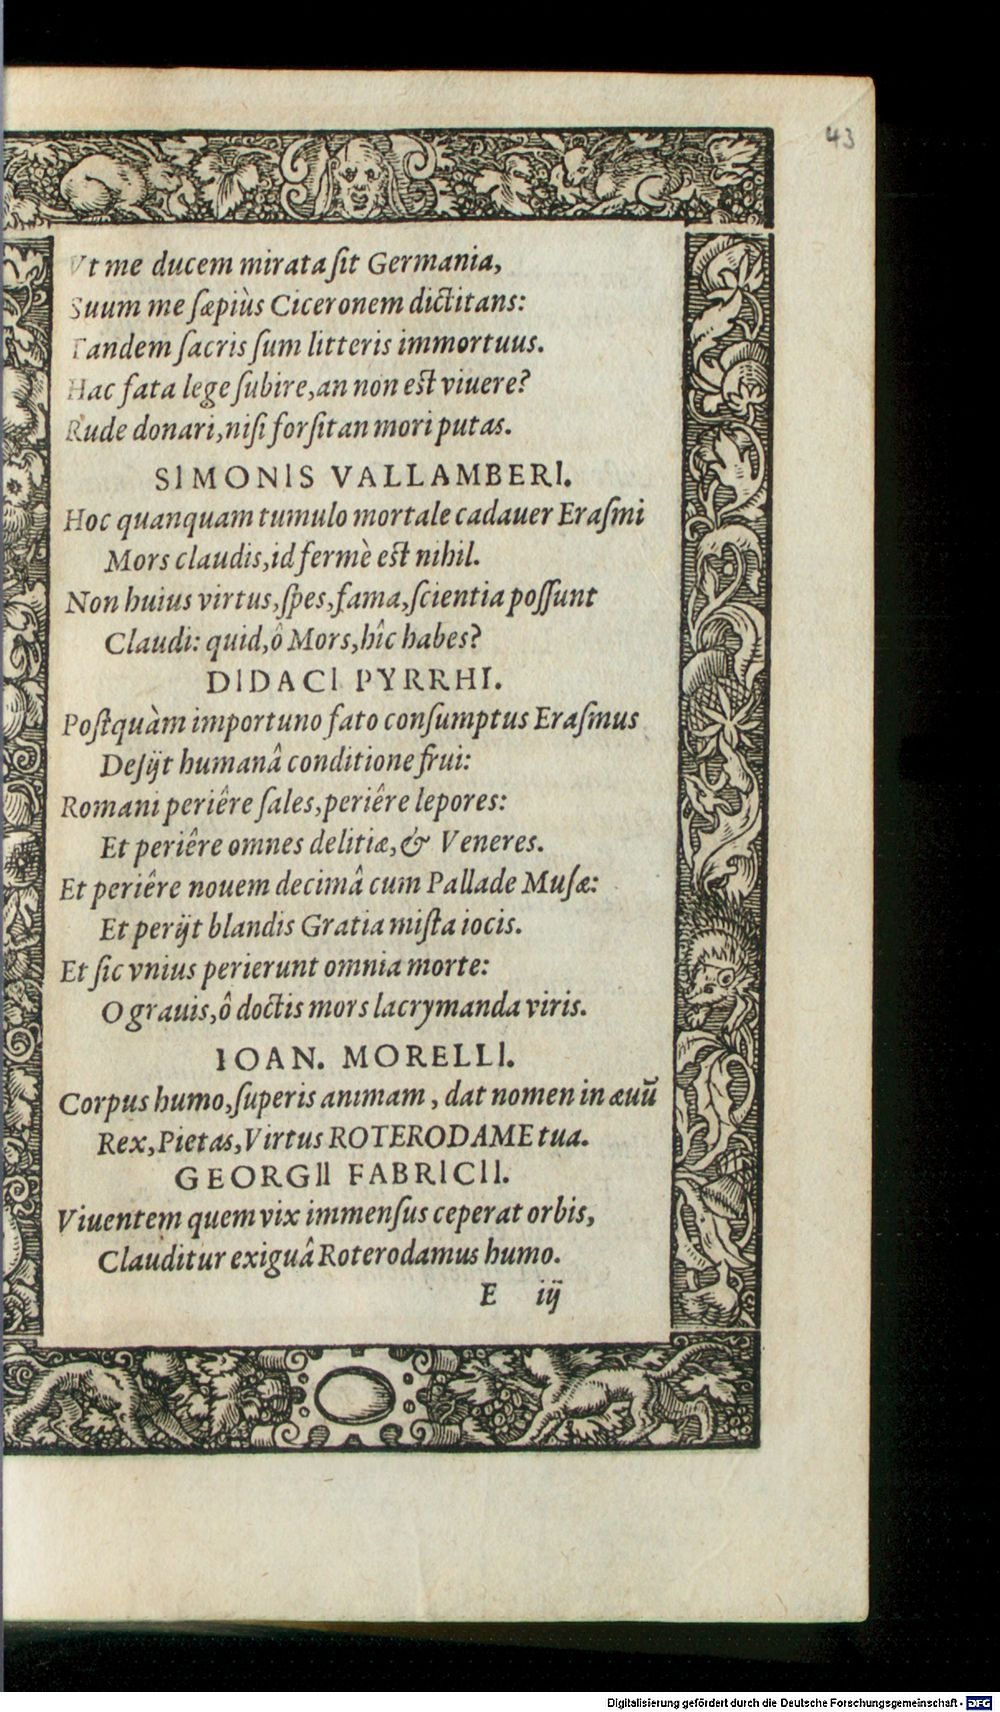 43
Vt me ducem mirata ſit Germania,
Suum me ſæpiùs Ciceronem dictitans:
Tandem ſacris ſum litteris immortuus.
Hac fata lege ſubire, an non eſt viuere?
Rude donari, niſi forſitan mori putas.
SIMONIS VALLAMBERI.
Hoc quanquam tumulo mortale cadauer Eraſmi
Mors claudis, id fermè eſt nihil.
Non huius virtus, ſpes, fama, ſcientia poſſunt
Claudi: quid, ô Mors, hîc habes?
DIDACI PYRRHI.
Poſtquàm importuno fato conſumptus Eraſmus
Deſijt humanâ conditione frui:
Romani periêre ſales, periêre lepores:
Et periêre omnes delitiæ, & Veneres.
Et periêre nouem decimâ cum Pallade Muſæ:
Et perijt blandis Gratia miſta iocis.
Et ſic vnius perierunt omnia morte:
O grauis, ô doctis mors lacrymanda viris.
IOAN. MORELLI.
Corpus humo, ſuperis animam, dat nomen in æuū
Rex, Pietas, Virtus ROTERODAME tua.
GEORGII FABRICII.
Viuentem quem vix immenſus ceperat orbis,
Clauditur exiguâ Roterodamus humo.
E iij
Digitalisierung gefördert durch die Deutsche Forschungsgemeinschaft - DFG